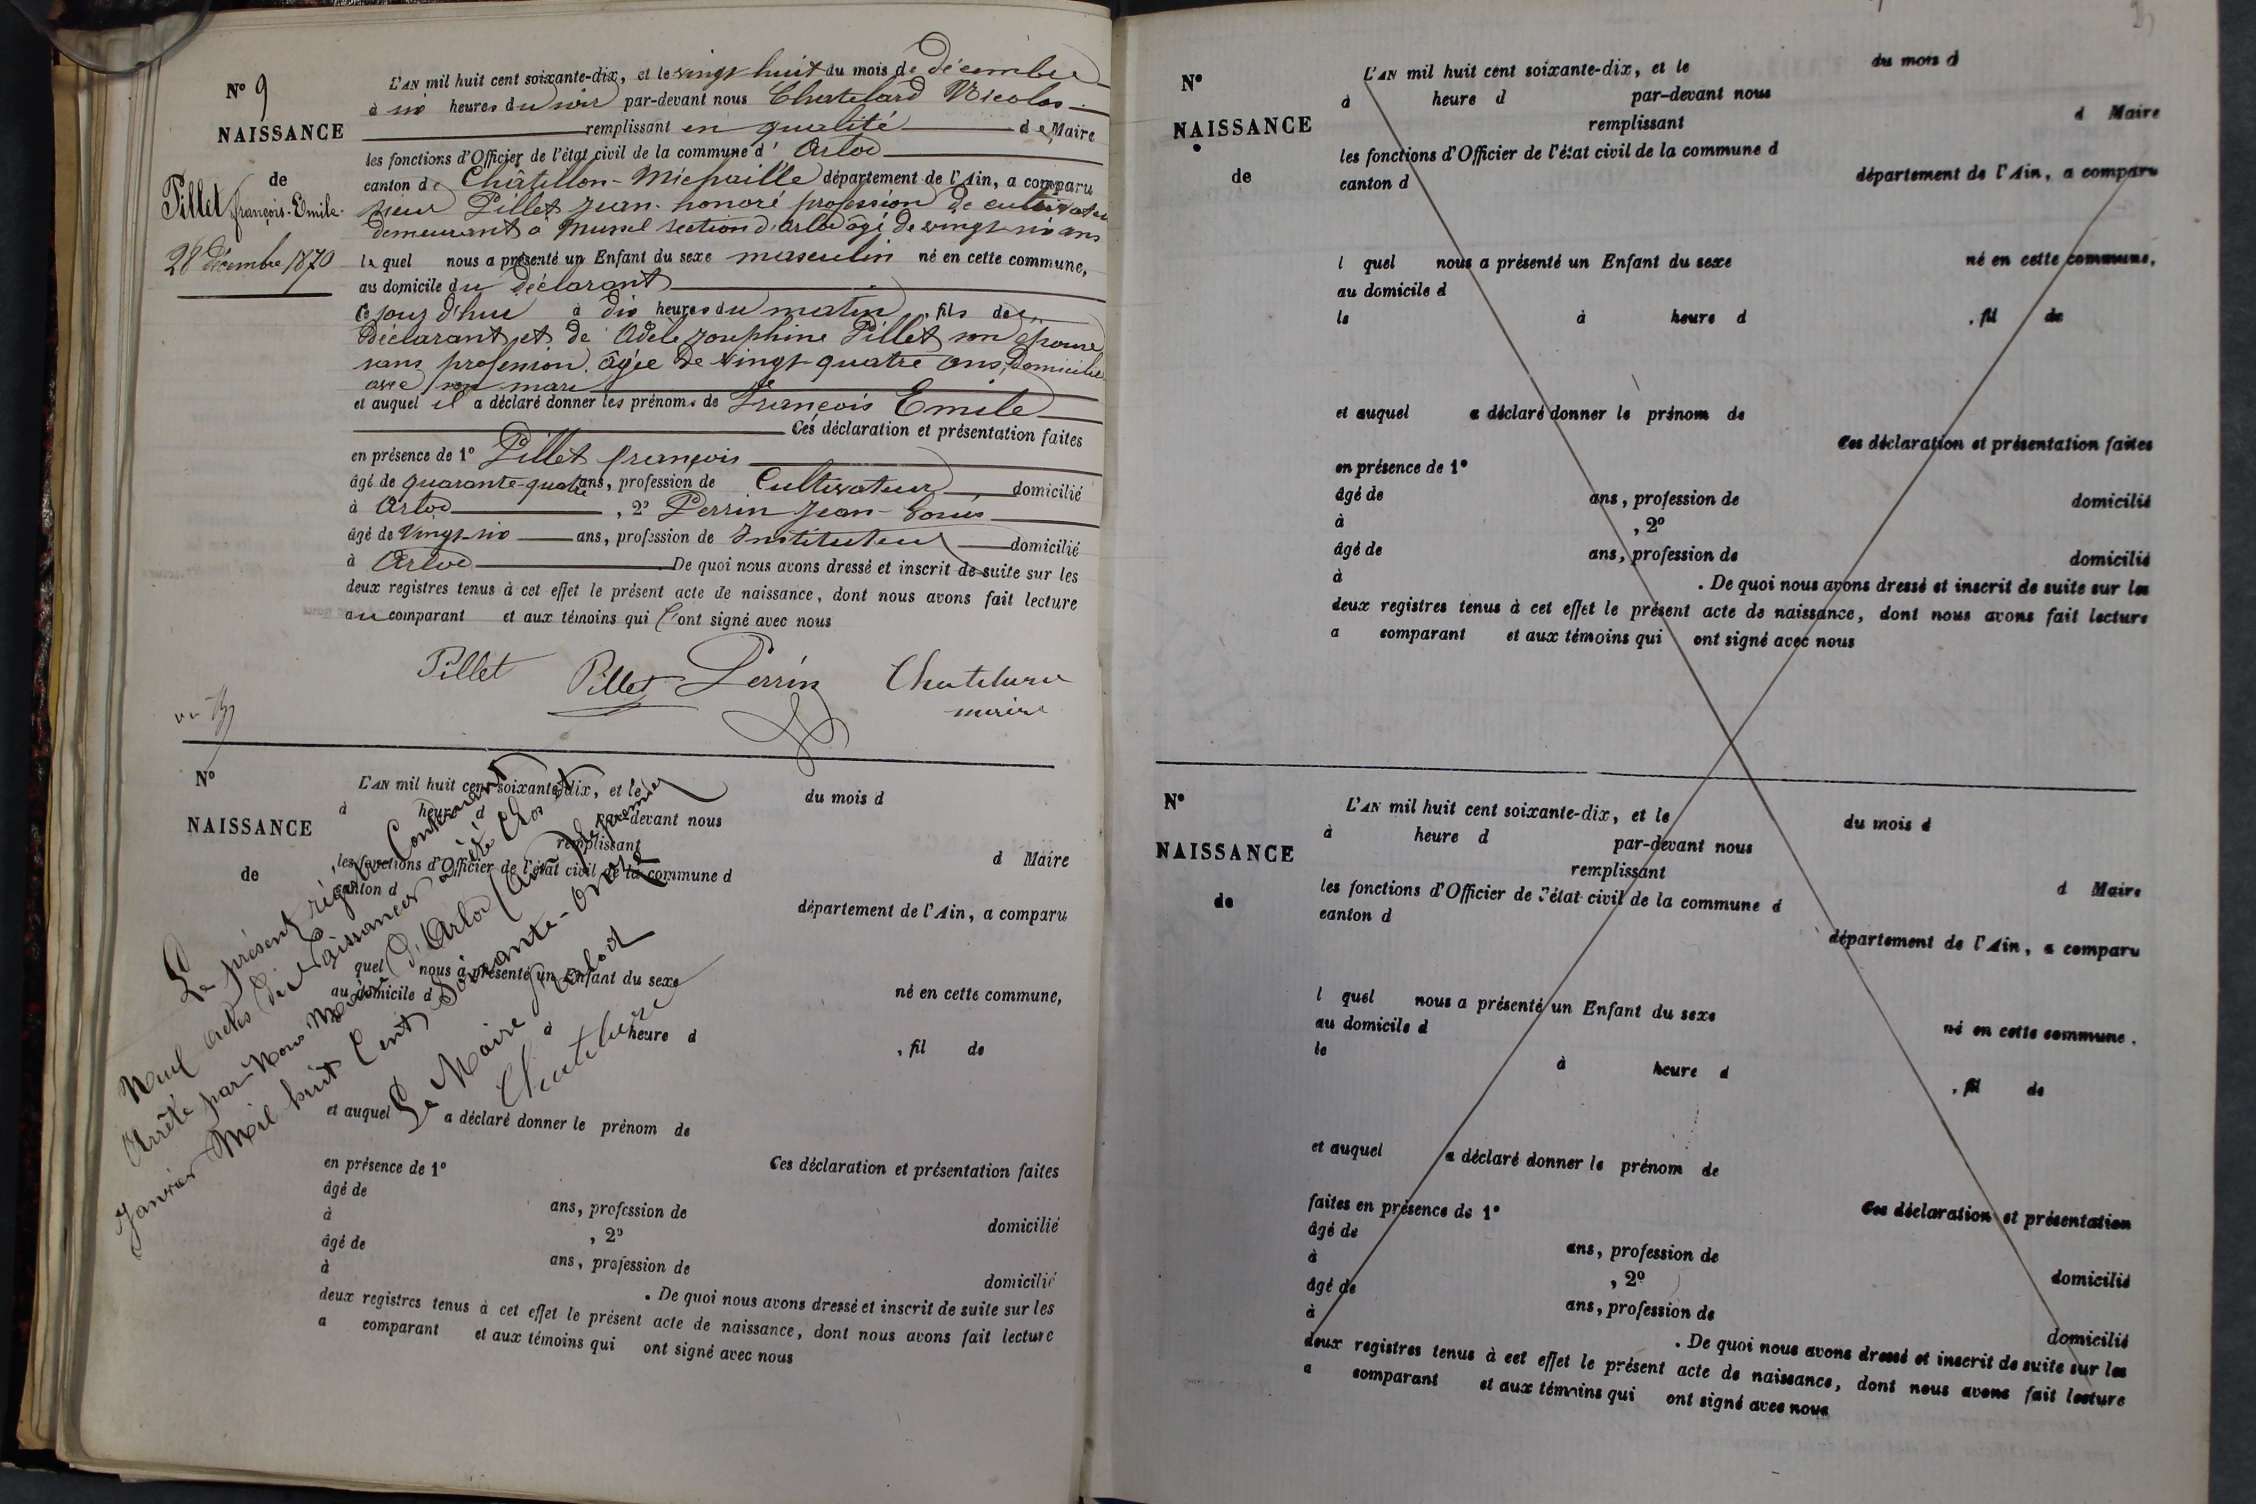 N° 9
NAISSANCE
de
Pillet françois-Emile.
28 décembre 1870
L'AN mil huit cent soixante-dix, et le vingt huit du mois de décembre
à six heures du soir par-devant nous Chatelard Nicolas
remplissant en qualité de Maire
les fonctions d'Officier de l'état civil de la commune d'Arlod
canton de Châtillon-Michaille département de l'Ain, a comparu
sieur Pillet Jean-honoré profession de cultivateur
demeurant à Mussel section d'arlod âgé de vingt-six ans
lequel nous a présenté un Enfant du sexe masculin né en cette commune,
au domicile du déclarant
Ce jourd'hui à dix heures du matin, fils de
Déclarant et de Adèle Josephine Pillet son épouse
sans profession, âgée de vingt-quatre ans, domiciliée
avec son mari
et auquel il a déclaré donner les prénoms de François Emile
Ces déclaration et présentation faites
en présence de 1° Pillet françois
âgé de quarante-quatre ans, profession de Cultivateur domicilié
à Arlod, 2° Perrin Jean-Louis
âgé de vingt-six ans, profession de Instituteur domicilié
à Arlod De quoi nous avons dressé et inscrit de suite sur les
deux registres tenus à cet effet le présent acte de naissance, dont nous avons fait lecture
au comparant et aux témoins qui l'ont signé avec nous
Pillet Pillet Perrin Chatelard
maire
N°
NAISSANCE
de
L'AN mil huit cent soixante-dix, et le du mois d
à heure d par-devant nous
remplissant d Maire
les fonctions d'Officier de l'état civil de la commune d
canton d département de l'Ain, a comparu
quel nous a présenté un Enfant du sexe né en cette commune,
au domicile d
à heure d , fil de
et auquel a déclaré donner le prénom de
Ces déclaration et présentation faites
en présence de 1°
âgé de ans, profession de domicilié
à , 2°
âgé de ans, profession de domicilié
à . De quoi nous avons dressé et inscrit de suite sur les
deux registres tenus à cet effet le présent acte de naissance, dont nous avons fait lecture
a comparant et aux témoins qui ont signé avec nous
Le présent régistre Contenant
Neuf actes de Naissances a été Clos et
Arrêté par Nous Maire d'Arlod (Ain) le premier
Janvier Mil huit Cent Soixante-Onze
Le Maire d'Arlod
Chatelard
N°
NAISSANCE
de
L'AN mil huit cent soixante-dix, et le du mois d
à heure d par-devant nous
remplissant d Maire
les fonctions d'Officier de l'état civil de la commune d
canton d département de l'Ain, a comparu
l quel nous a présenté un Enfant du sexe né en cette commune,
au domicile d
le à heure d , fil de
et auquel a déclaré donner le prénom de
Ces déclaration et présentation faites
en présence de 1°
âgé de ans, profession de domicilié
à , 2°
âgé de ans, profession de domicilié
à . De quoi nous avons dressé et inscrit de suite sur les
deux registres tenus à cet effet le présent acte de naissance, dont nous avons fait lecture
a comparant et aux témoins qui ont signé avec nous
N°
NAISSANCE
de
L'AN mil huit cent soixante-dix, et le du mois d
à heure d par-devant nous
remplissant d Maire
les fonctions d'Officier de l'état civil de la commune d
canton d département de l'Ain, a comparu
l quel nous a présenté un Enfant du sexe né en cette commune.
au domicile d
le à heure d , fil de
et auquel a déclaré donner le prénom de
Ces déclaration et présentation
faites en présence de 1°
âgé de ans, profession de domicilié
à , 2°
âgé de ans, profession de domicilié
à . De quoi nous avons dressé et inscrit de suite sur les
deux registres tenus à cet effet le présent acte de naissance, dont nous avons fait lecture
a comparant et aux témoins qui ont signé avec nous